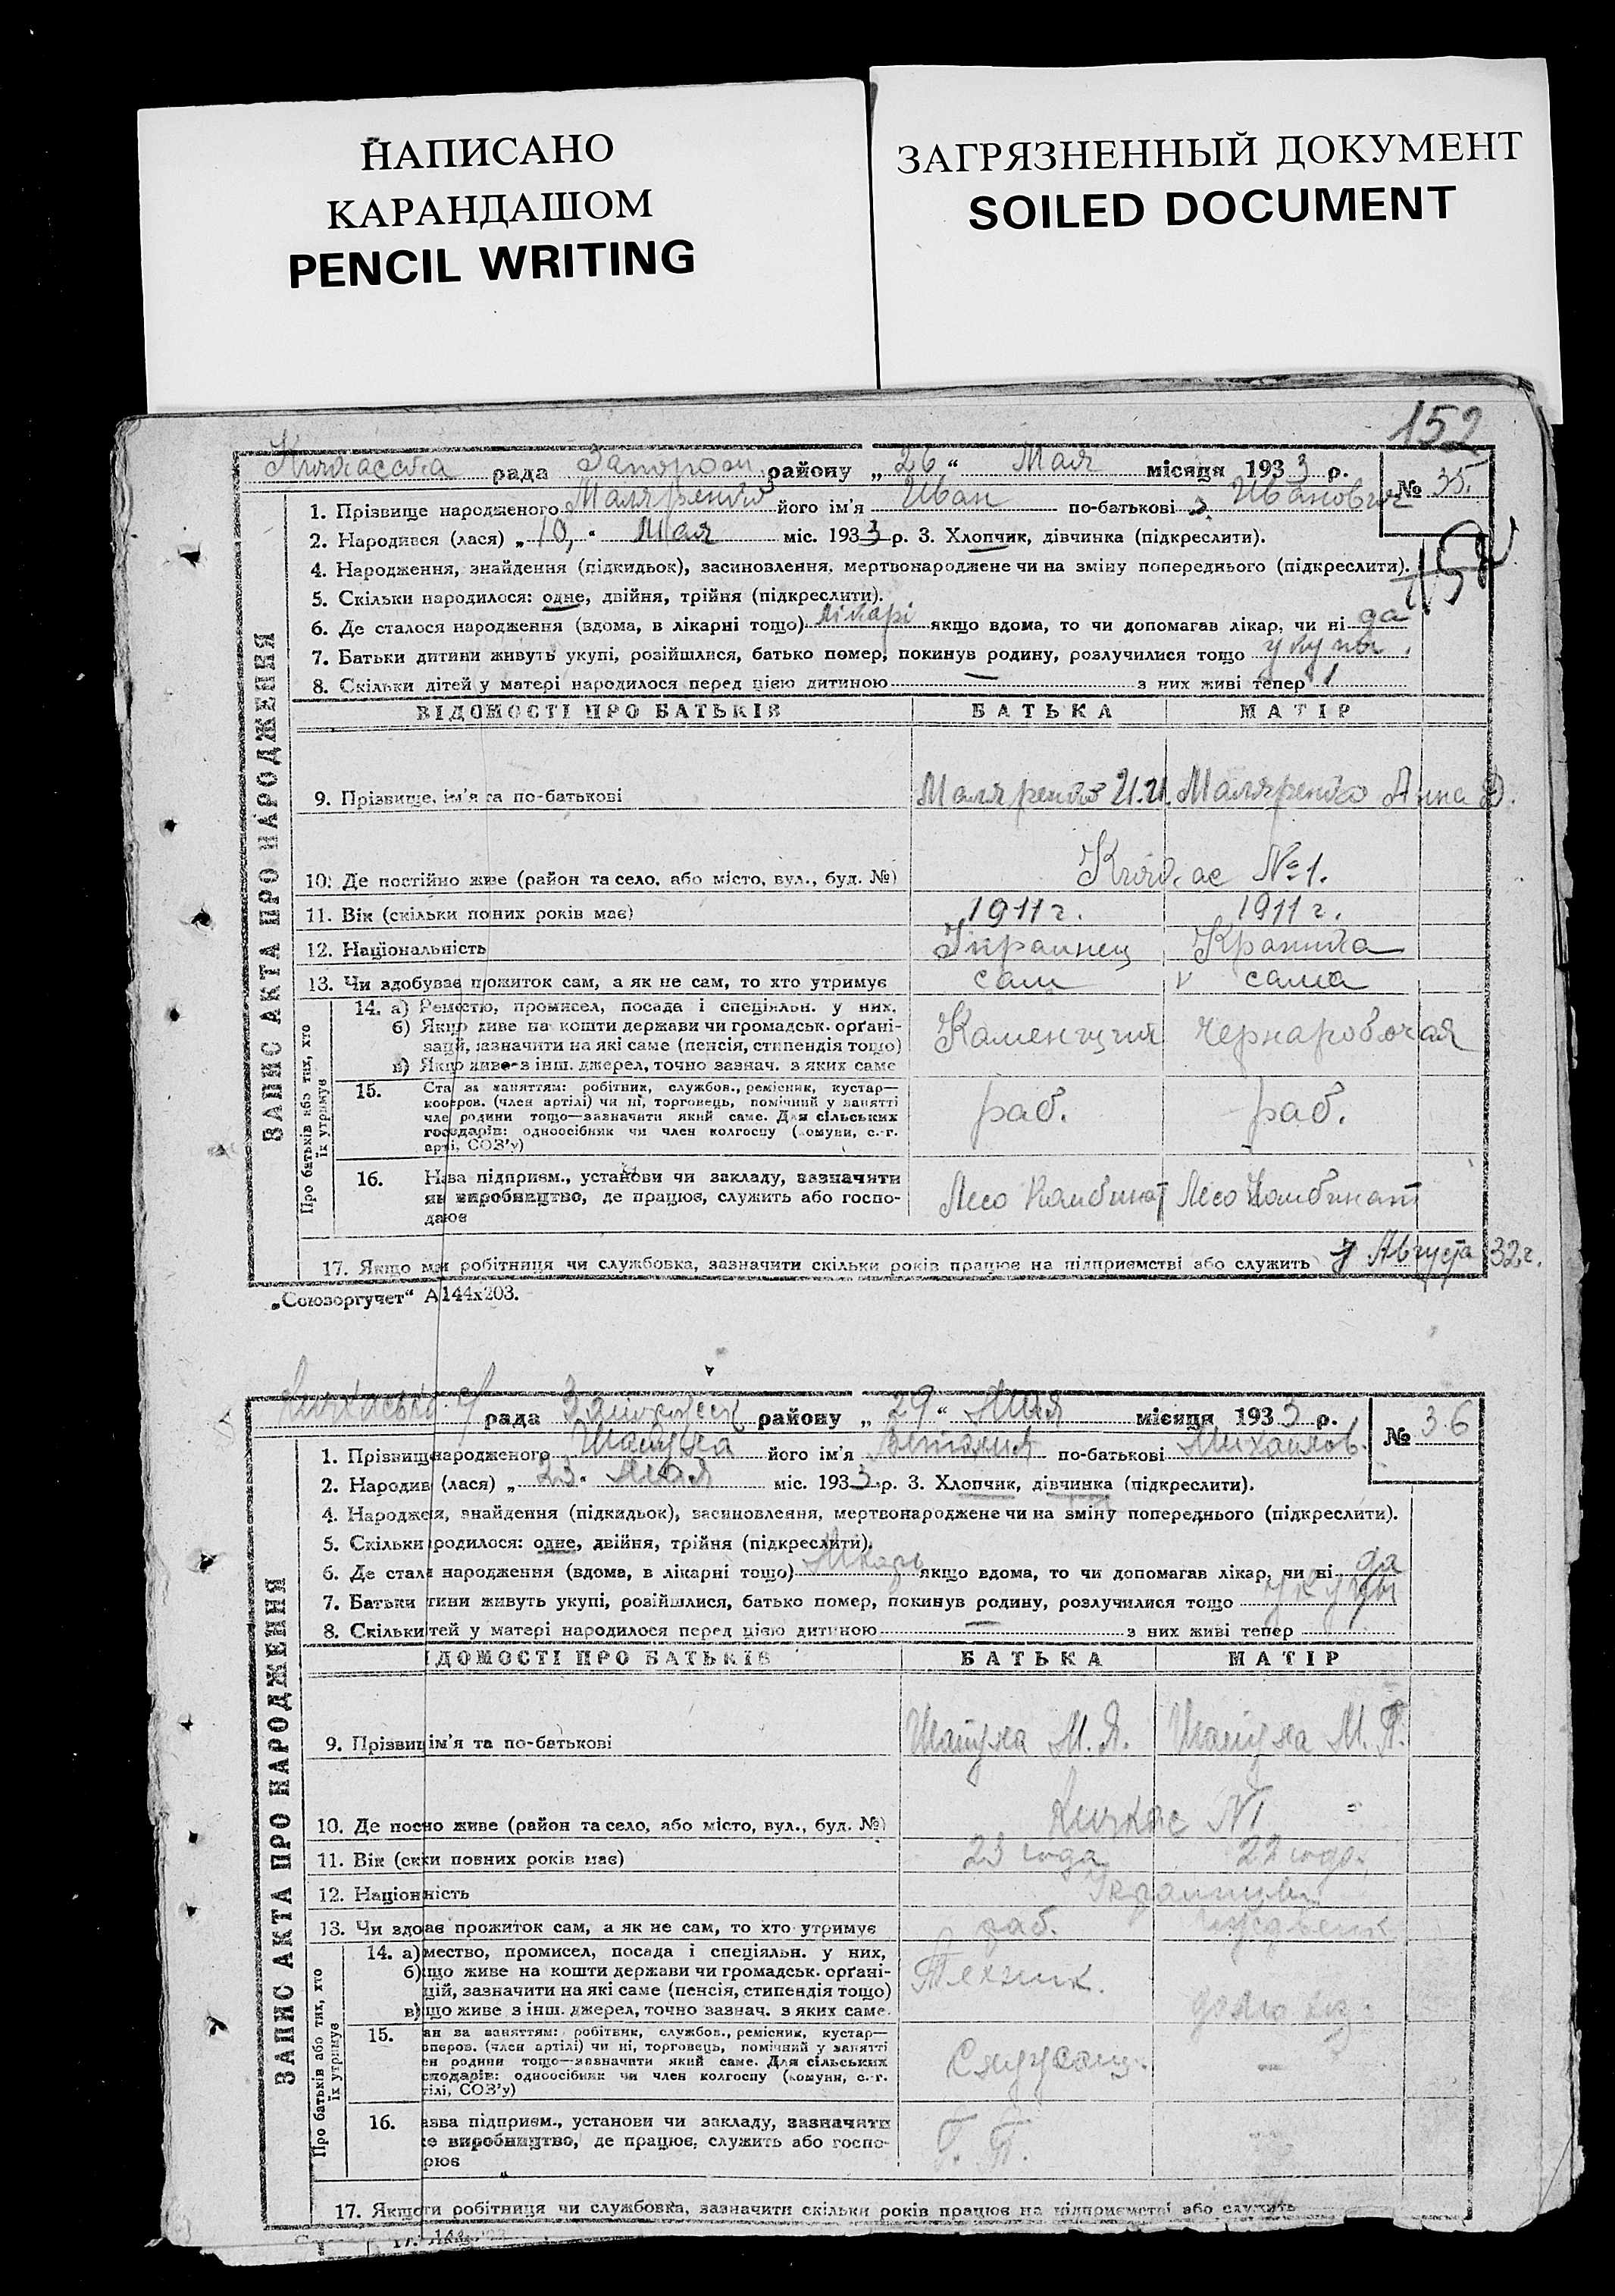 НАПИСАНО
КАРАНДАШОМ
PENCIL WRITING
ЗАГРЯЗНЕННЫЙ ДОКУМЕНТ
SOILED DOCUMENT
152
рада Запорож. району „ 26 “ Мая місяця 1933 р.
№ 35.
1. Прізвище народженого Маляренко його ім'я Иван по-батькові Иванович
2. Народився (лася) „ 10, " Мая міс. 1933 р. 3. Хлопчик, дівчинка (підкреслити).
4. Народження, знайдення (підкидьок), засиновлення, мертвонароджене чи на зміну попереднього (підкреслити).
5. Скільки народилося: одне, двійня, трійня (підкреслити).
6. Де сталося народження (вдома, в лікарні тощо) лікарі якщо вдома, то чи допомагав лікар, чи ні да
7. Батьки дитини живуть укупі, розійшлися, батько помер, покинув родину, розлучилися тощо укупы.
8. Скільки дітей у матері народилося перед цією дитиною — з них живі тепер 1
ЗАПИС АКТА ПРО НАРОДЖЕННЯ
ВІДОМОСТІ ПРО БАТЬКІВ БАТЬКА МАТІР
9. Прізвище, ім'я та по-батькові Маляренко И.И. Маляренко Анна Д.
10. Де постійно живе (район та село, або місто, вул., буд. №) Кичкас №1.
11. Вік (скільки повних років має) 1911 г. 1911 г.
12. Національність Украинец Краинка
13. Чи здобуває прожиток сам, а як не сам, то хто утримує сам сама
Про батьків або тих, хто їх утримує
14. а) Ремество, промисел, посада і спеціяльн. у них.
б) Якщо живе на кошти держави чи громадськ. орґані-
зацій, зазначити на які саме (пенсія, стипендія тощо) Каменщик чернаробочая
в) Якщо живе з інш. джерел, точно зазнач. з яких саме
15. Стан за заняттям: робітник, службов., ремісник, кустар—
кооперов. (член артілі) чи ні, торговець, помічний у занятті
член родини тощо—зазначити який саме. Для сільських раб. раб.
господарів: одноосібник чи член колгоспу (комуни, с.-г.
артілі, СОЗ'у)
16. Назва підприєм., установи чи закладу, зазначити
як виробництво, де працює, служить або госпо- Лесо Комбинат Лесо Комбинат
дарює
17. Якщо мати робітниця чи службовка, зазначити скільки років працює на підприємстві або служить Августа 32 г.
„Союзоргучет“ А 144х203.
рада району „ 29 “ Мая місяця 1933 р.
№ 36
1. Прізвищ народженого його ім'я по-батькові Михайлов.
2. Народив (лася) „ 23 " Мая міс. 1933 р. 3. Хлопчик, дівчинка (підкреслити).
4. Народжея, знайдення (підкидьок), засиновлення, мертвонароджене чи на зміну попереднього (підкреслити).
5. Скільки родилося: одне, двійня, трійня (підкреслити).
6. Де стал народження (вдома, в лікарні тощо) якщо вдома, то чи допомагав лікар, чи ні да
7. Батьки тини живуть укупі, розійшлися, батько помер, покинув родину, розлучилися тощо укупы
8. Скільки тей у матері народилося перед цією дитиною — з них живі тепер
ЗАПИС АКТА ПРО НАРОДЖЕННЯ
ІДОМОСТІ ПРО БАТЬКІВ БАТЬКА МАТІР
9. Прізвищ ім'я та по-батькові М. Я. М. П.
10. Де посно живе (район та село, або місто, вул., буд. №) Кичкас №1
11. Вік (скки повних років має) 23 года 22 года.
12. Націонність Украинцы
13. Чи здоає прожиток сам, а як не сам, то хто утримує раб. иждвенк
Про батьків або тих, хто їх утримує
14. а) мество, промисел, посада і спеціяльн. у них,
б) що живе на кошти держави чи громадськ. орґані- Техник.
цій, зазначити на які саме (пенсія, стипендія тощо)
в) що живе з інш. джерел, точно зазнач. з яких саме. домо хоз.
15. ан за заняттям: робітник, службов., ремісник, кустар—
оперов. (член артілі) чи ні, торговець, помічний у занятті
ен родини тощо—зазначити який саме. Для сільських —
сподарів: одноосібник чи член колгоспу (комуни, с.-г.
тілі, СОЗ'у)
16. азва підприєм., установи чи закладу, зазначити
е виробництво, де працює, служить або госпо- Г. П.
рює
17. Якщо ти робітниця чи службовка, зазначити скільки років працює на підприємстві або служить